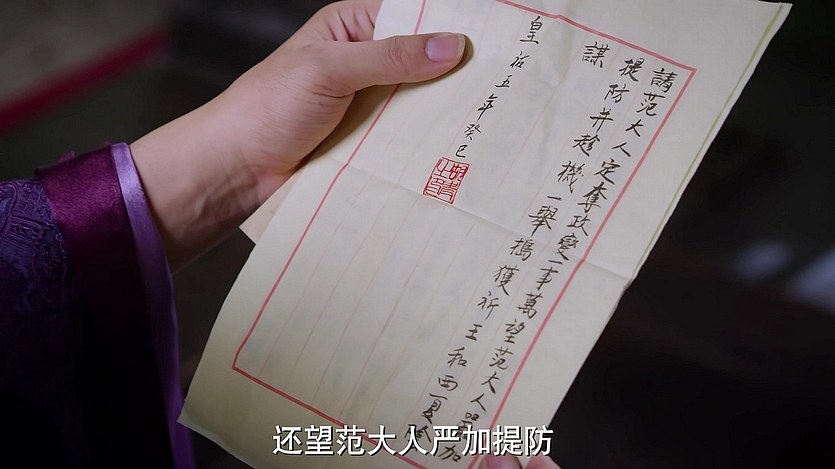 請范大人定奪政變一事萬望范大人嚴加
提防并趁機一舉搗獲祈王和西夏陰
謀
皇祐五年癸巳
还望范大人严加提防